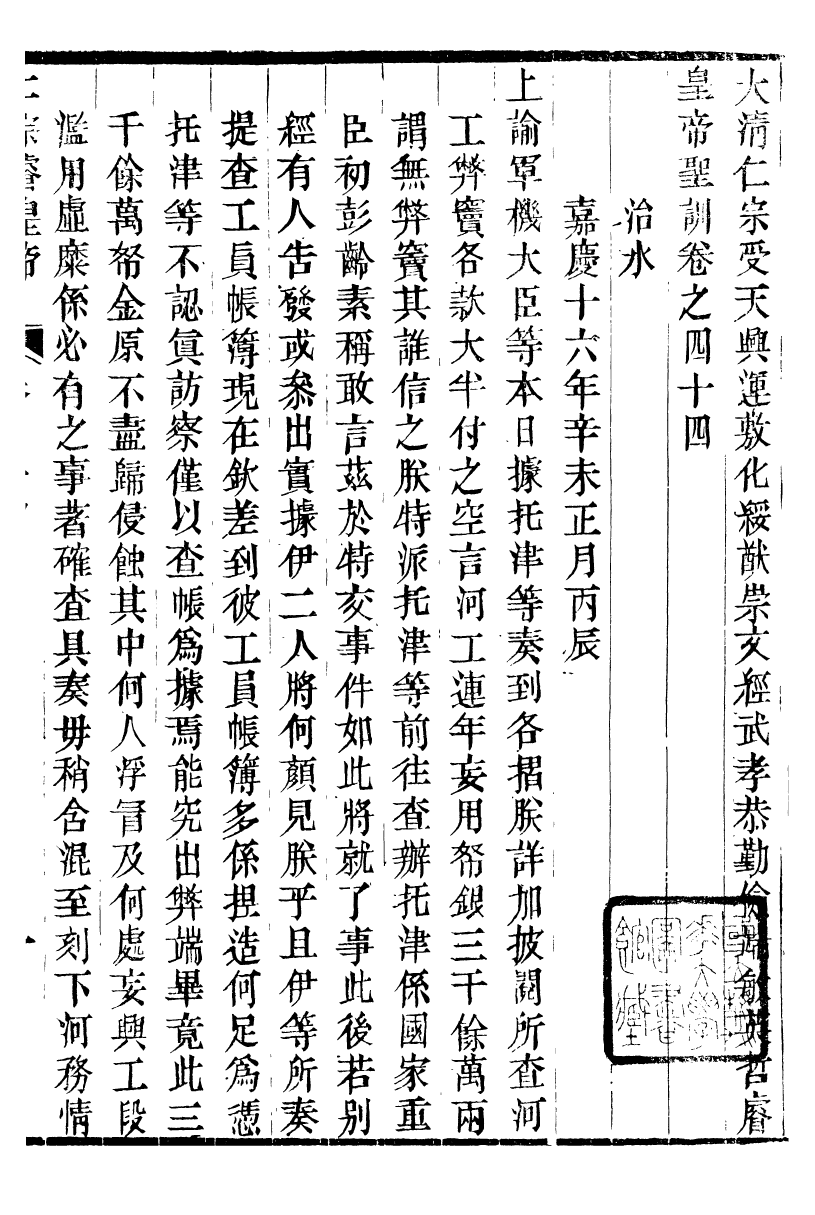 大清仁宗受天興運敷化綏猷崇文經武孝恭勤儉端敏英哲睿
皇帝聖訓卷之四十四
治水
嘉慶十六年辛未正月丙辰
上諭軍機大臣等本日據托津等奏到各摺朕詳加披閱所查河
工弊竇各款大半付之空言河工連年妄用帑銀三千餘萬兩
謂無弊竇其誰信之朕特派托津等前往查辦托津係國家重
臣初彭齡素稱敢言茲於特交事件如此將就了事此後若別
經有人告發或叅出實據伊二人將何顏見朕乎且伊等所奏
提查工員帳簿現在欽差到彼工員帳簿多係揑造何足爲憑
托津等不認眞訪察僅以查帳爲據焉能究出弊端畢竟此三
千餘萬帑金原不盡歸侵蝕其中何人浮冒及何處妄興工段
濫用虛糜係必有之事著確查具奏毋稍含混至刻下河務情
仁宗睿皇帝